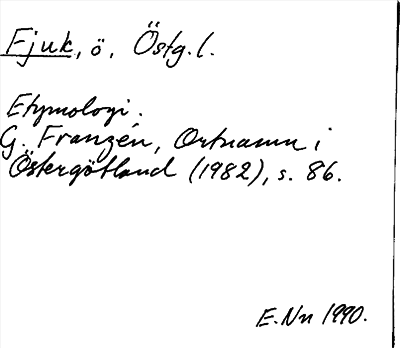 Fjuk, ö, Östg. l.
Etymologi.
G. Franzén, Ortnamn i
Östergötland (1982), s. 86.
E. Nn 1990.